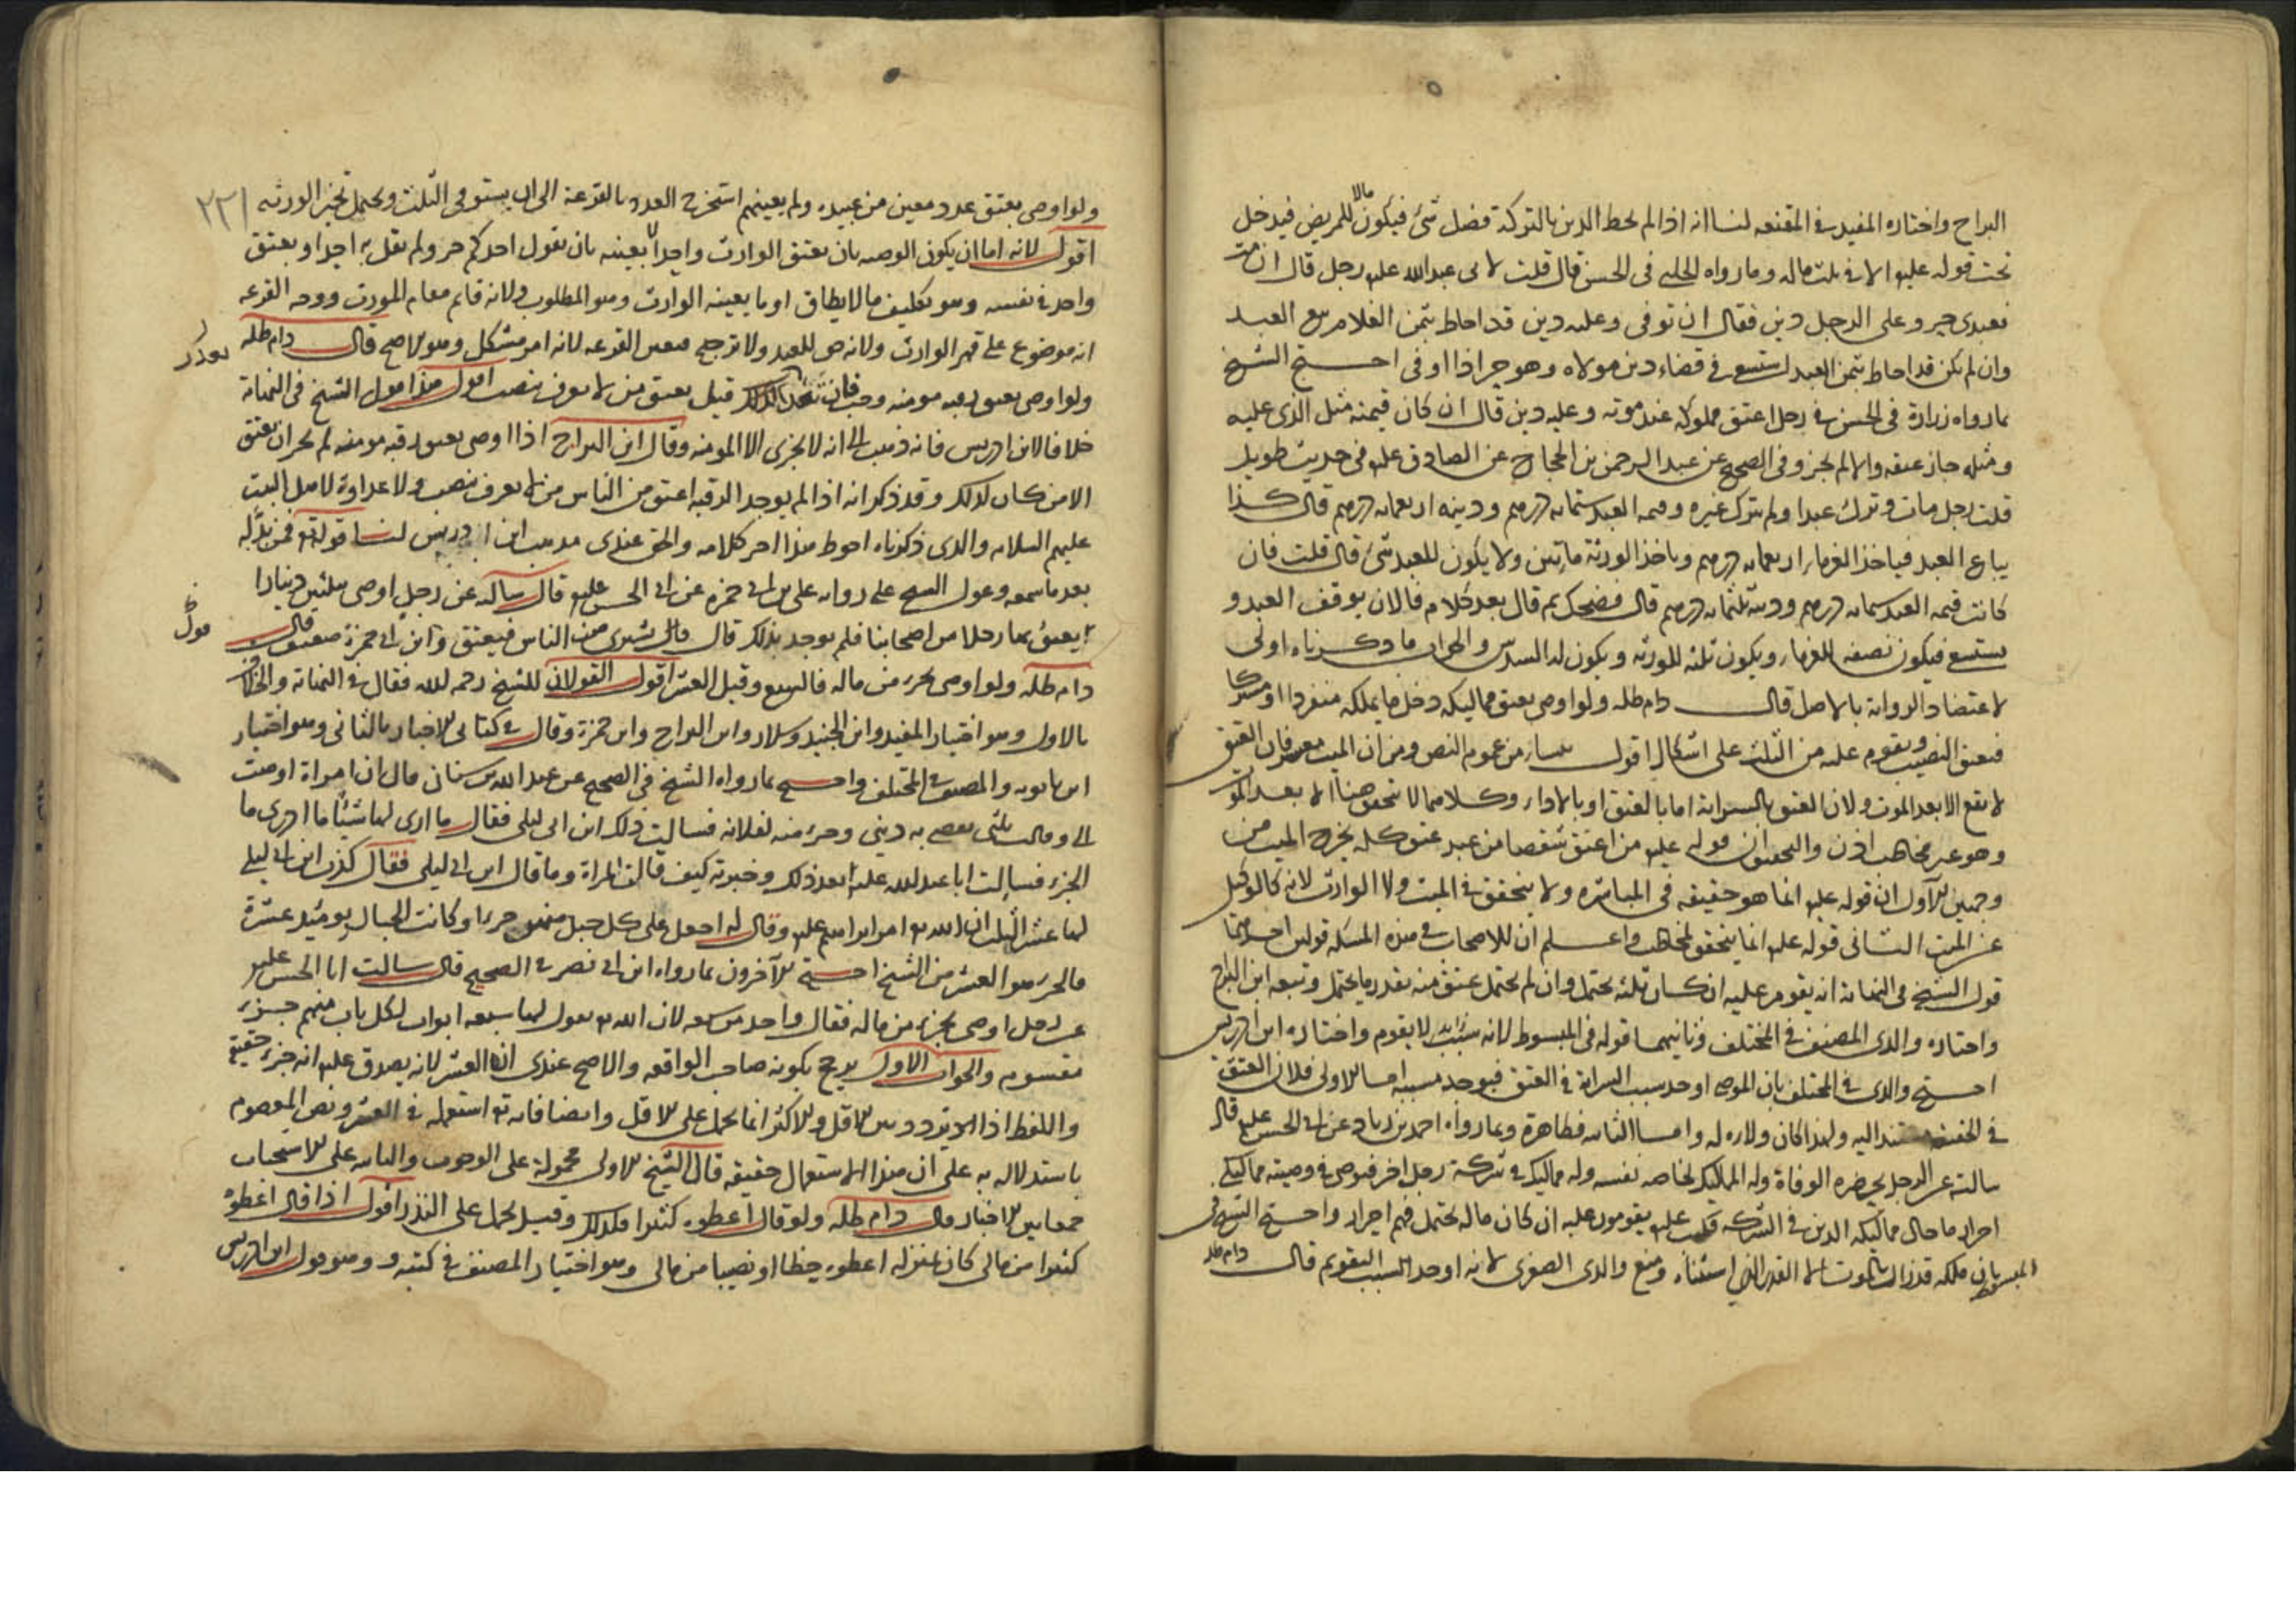 البراج واختاره المفيد في المقنعه لنا انه اذا لم يحط الدين بالتركة فضل شئ فيكون مالا للمريض فيدخل
تحت قوله عليه الا في ثلث ماله وما رواه الحلبي في الحسن قال قلت لابي عبدالله عليه رجل قال ان مت
فعبدي حر وعلى الرجل دين فقال ان توفى وعليه دين قد احاط بثمن الغلام بيع العبد
وان لم يكن قد احاط بثمن العبد استسعى في قضاء دين مولاه وهو حر اذا اوفى احتج الشيخ
بما رواه زرارة في الحسن في رجل اعتق مملوكه عند موته وعليه دين قال ان كان قيمته مثل الذي عليه
ومثله جاز عتقه والا لم يجز وفي الصحيح عن عبد الرحمن بن الحجاج عن الصادق عليه في حديث طويل
قلت رجل مات وترك عبدا ولم يترك غيره وقيمه العبد ستمايه درهم ودينه اربعمايه درهم قال كذا
يباع العبد فياخذ الغرماء اربعمايه درهم وياخذ الورثة مأتين ولا يكون للعبد شئ قال قلت فان
كانت قيمه العبد ستمايه درهم ودينه ثلثمايه درهم قال فضحك ثم قال بعد كلام فالان يوقف العبد و
يستسعى فيكون نصفه للغرماء ويكون ثلثه للورثه ويكون له السدس والجواب ما ذكرناه اولى
لاعتضاد الرواية بالاصل قال دام ظله ولو اوصى بعتق مماليكه دخل ما يملكه منفردا او مشتركا
فيعتق النصيب ويقوم عليه من الثلث على اشكال اقول ينشأ من عموم النص ومن ان الميت معسر فان العتق
لا يقع الا بعد الموت ولان العتق بالسراية اما بالعتق او بالاداء وكلاهما لا يتحقق هنا الا بعد الموت
وهو غير مخاطب اذن والتحقيق ان قوله عليه من اعتق شقصا من عبد عتق كله يخرج الميت من
وجهين الاول ان قوله عليه انما هو حقيقه في المباشره ولا يتحقق في الميت ولا الوارث لانه كالوكيل
عن الميت الثاني قوله عليه انما يتحقق لمخاطب واعلم ان للاصحاب في هذه المسئله قولين احدهما
قول الشيخ في النهاية انه يقوم عليه ان كان ثلثه يحتمل وان لم يحتمل عتق منه بقدر ما يحتمل وتبعه ابن البراج
واختاره والدي المصنف في المختلف وثانيهما قوله في المبسوط لانه لا يقوم واختاره ابن ادريس
احتج والدي في المختلف بان الموصي اوجد سبب السراية في العتق فيوجد مسببه اما الاولى فلان العتق
في الحقيقه مستند اليه ولهذا كان ولاءه له واما الثانيه فظاهرة وبما رواه احمد بن زياد عن ابي الحسن عليه قال
سالته عن الرجل يحضره الوفاة وله المماليك لخاصه نفسه وله مماليك في شركة رجل اخر فيوصي في وصيته مماليكي
احرار ما حال مماليكه الذين في الشركه فكتب عليه يقومون عليه ان كان ماله يحتمل فهم احرار واحتج الشيخ في
المبسوط بان ملكه قد زال بالموت الا القدر الذي استثناه ومنع والدي الصغرى لانه اوجد السبب التقويم قال دام ظله
ولو اوصى بعتق عدد معين من عبيده ولم يعينهم استخرج العدد بالقرعة الى ان يستوفى الثلث ويحتمل تخير الورثه
٢٢١
اقول لانه اما ان يكون الوصيه بان يعتق الوارث واحدا بعينه بان يقول احدكم حر ولم يقل به احد او بعتق
واحد في نفسه وهو تكليف ما لا يطاق او ما يعينه الوارث وهو المطلوب ولانه قايم مقام المورث ووجه القرعه
انه موضوع على قهر الوارث ولانه حق للعبد ولا ترجيح فتعين القرعه لانه امر مشكل وهو الاصح قال دام ظله
ولو اوصى بعتق رقبه مومنه وجب فان تعذر قيل يعتق من لا يعرف بنصب اقول هذا قول الشيخ في النهاية
خلافا لابن ادريس فانه ذهب الى انه لا يجزى الا المومنه وقال ابن البراج اذا اوصى بعتق رقبه مومنه لم يجز ان يعتق
الا من كان كذلك وقد ذكر انه اذا لم يوجد الرقبه اعتق من الناس من لا يعرف بنصب ولا عداوة لاهل البيت
عليهم السلام والذي ذكرناه احوط هذا اخر كلامه والحق عندي مذهب ابن ادريس لنا قوله تع فمن بدله
بعد ما سمعه وعول الشيخ على روايه علي بن ابي حمزه عن ابي الحسن عليه قال سالته عن رجل اوصى بثلثين دينارا
يعتق بها رجلا من اصحابنا فلم يوجد بذلك قال يشترى من الناس فيعتق وابن ابي حمزة ضعيف قال
دام ظله ولو اوصى بجزء من ماله فالسبع وقيل العشر اقول القولان للشيخ رحمه الله فقال في النهاية والخلاف
بالاول وهو اختيار المفيد وابن الجنيد وسلار وابن البراج وابن حمزة وقال في كتابي الاخبار بالثاني وهو اختيار
ابن بابويه والمصنف في المختلف واحتج بما رواه الشيخ في الصحيح عن عبد الله بن سنان قال ان امراة اوصت
الي وقالت ثلثي يقضى به ديني وجزء منه لفلانه فسالت ذلك ابن ابي ليلى فقال ما ارى لها شيئا ما ادري ما
الجزء فسالت ابا عبد الله عليه بعد ذلك وخبرته كيف قالت المراة وما قال ابن ابي ليلى فقال كذب ابن ابي ليلى
لها عشر الثلث ان الله تع امر ابراهيم عليه وقال له اجعل على كل جبل منهن جزءا وكانت الجبال يومئذ عشرة
فالجزء هو العشر من الشيخ احتج الآخرون بما رواه ابن ابي نصر في الصحيح قال سالت ابا الحسن عليه
عن رجل اوصى بجزء من ماله فقال واحد من سبعه لان الله تع يقول لها سبعه ابواب لكل باب منهم جزء
مقسوم والجواب الاول يرجح بكونه صاحب الواقعه والاصح عندي انه العشر لانه يصدق عليه انه جزء حقيقة
واللفظ اذا تردد بين الاقل والاكثر انما يحمل على الاقل وايضا فانه تع استعمله في العشر ونص المعصوم
باستدلاله به على ان هذا الاستعمال حقيقه قال الشيخ الاولى محمولة على الوجوب والثانيه على الاستحباب
جمعا بين الاخبار قال دام ظله ولو قال اعطوه كثيرا فكذلك وقيل يحمل على النذر اقول اذا قال اعطوه
كثيرا من مالي كان بمنزله اعطوه حظا او نصيبا من مالي وهو اختيار المصنف في كتبه وهو قول ابن ادريس